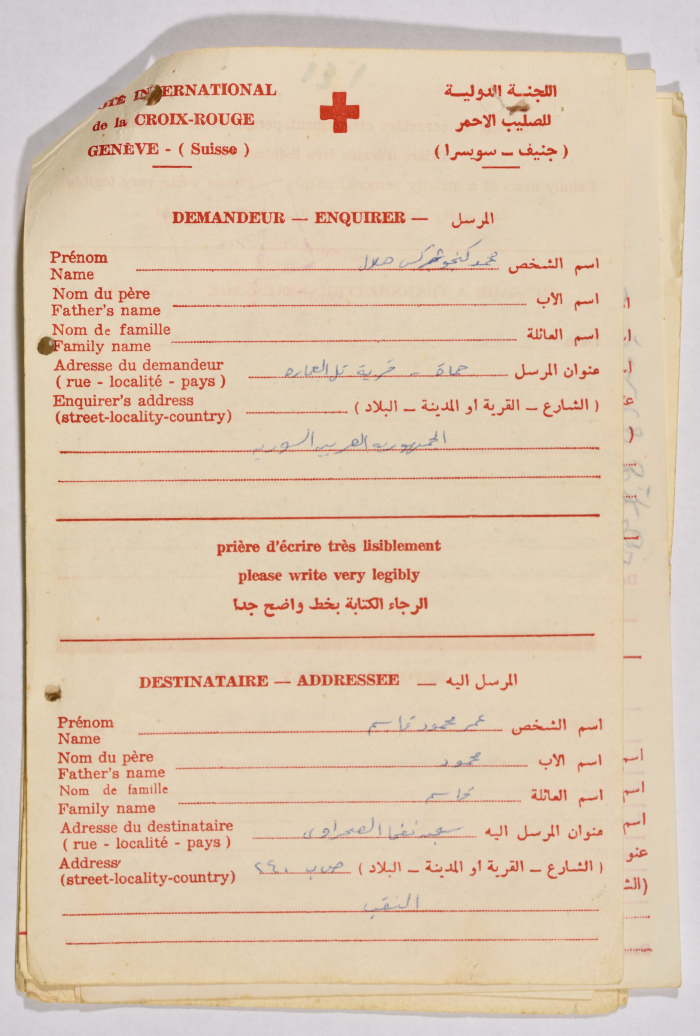 INTERNATIONAL
de la CROIX-ROUGE
GENÈVE - ( Suisse )
اللجنة الدولية
للصليب الاحمر
( جنيف – سويسرا )
DEMANDEUR — ENQUIRER — المرسل
Prénom
Name
اسم الشخص محمد كنجو شركس هلال
Nom du père
Father's name
اسم الأب
Nom de famille
Family name
اسم العائلة
Adresse du demandeur
( rue - localité - pays )
عنوان المرسل حماة - قرية تل العمارة
Enquirer's address
(street-locality-country)
( الشارع – القرية أو المدينة – البلاد )
الجمهورية العربية السورية
prière d'écrire très lisiblement
please write very legibly
الرجاء الكتابة بخط واضح جدا
DESTINATAIRE — ADDRESSEE — المرسل اليه
Prénom
Name
اسم الشخص عمر محمود قاسم
Nom du père
Father's name
اسم الأب محمود
Nom de famille
Family name
اسم العائلة قاسم
Adresse du destinataire
( rue - localité - pays )
عنوان المرسل اليه نفحا الصحراوي
Address
(street-locality-country)
( الشارع – القرية أو المدينة – البلاد ) ص.ب ٢٤٠
النقب